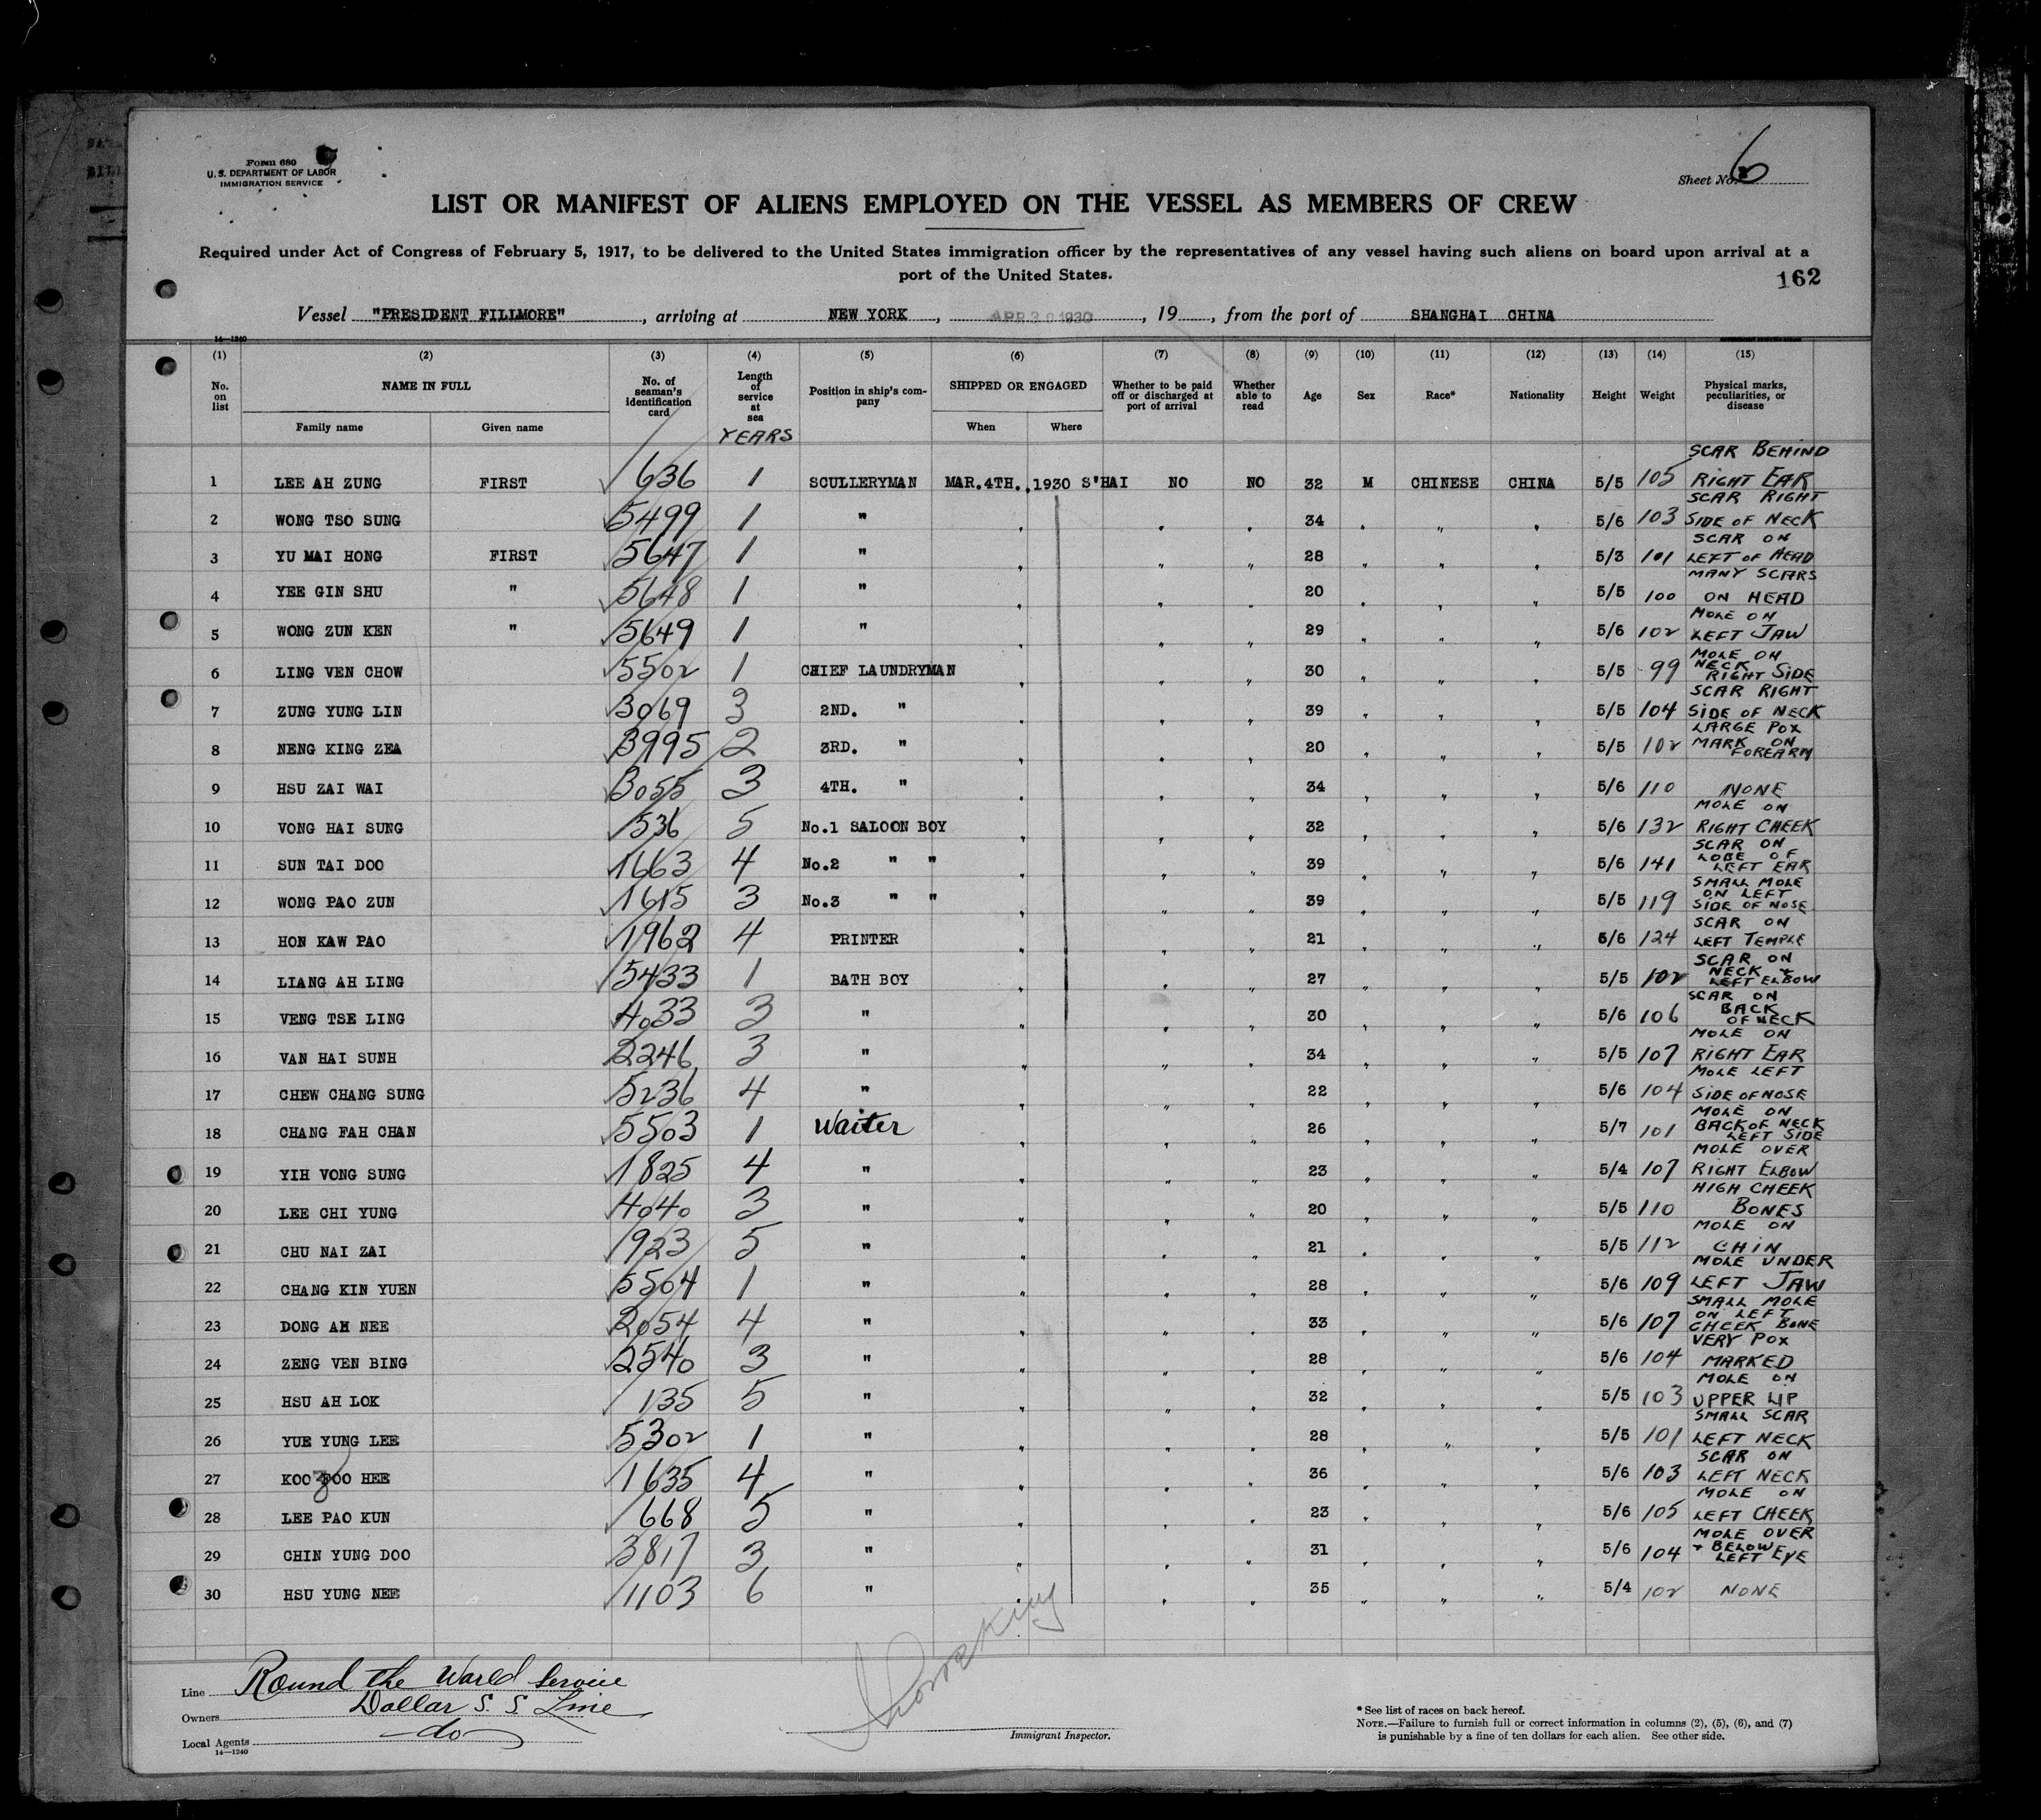 Form 680
U. S. DEPARTMENT OF LABOR
IMMIGRATION SERVICE
Sheet No. 6
LIST OR MANIFEST OF ALIENS EMPLOYED ON THE VESSEL AS MEMBERS OF CREW
Required under Act of Congress of February 5, 1917, to be delivered to the United States immigration officer by the representatives of any vessel having such aliens on board upon arrival at a
port of the United States.
162
Vessel "PRESIDENT FILLMORE", arriving at NEW YORK, APR 30 1930, 19, from the port of SHANGHAI CHINA
14—1240
(1) (2) (3) (4) (5) (6) (7) (8) (9) (10) (11) (12) (13) (14) (15)
No. on list NAME IN FULL No. of seaman's identification card Length of service at sea Position in ship's company SHIPPED OR ENGAGED Whether to be paid off or discharged at port of arrival Whether able to read Age Sex Race* Nationality Height Weight Physical marks, peculiarities, or disease
Family name Given name YEARS When Where
1 LEE AH ZUNG FIRST 636 1 SCULLERYMAN MAR.4TH.,1930 S'HAI NO NO 32 M CHINESE CHINA 5/5 105 SCAR BEHIND RIGHT EAR
2 WONG TSO SUNG 5499 1 " " " 34 " " " 5/6 103 SCAR RIGHT SIDE OF NECK
3 YU MAI HONG FIRST 5647 1 " " " " 28 " " " 5/3 101 SCAR ON LEFT OF HEAD
4 YEE GIN SHU " 5648 1 " " " " 20 " " " 5/5 100 MANY SCARS ON HEAD
5 WONG ZUN KEN " 5649 1 " " " " 29 " " " 5/6 102 MOLE ON LEFT JAW
6 LING VEN CHOW 5502 1 CHIEF LAUNDRYMAN " " " 30 " " " 5/5 99 MOLE ON NECK RIGHT SIDE
7 ZUNG YUNG LIN 3069 3 2ND. " " " " 39 " " " 5/5 104 SCAR RIGHT SIDE OF NECK
8 NENG KING ZEA 3995 2 3RD. " " " " 20 " " " 5/5 102 LARGE POX MARK ON FOREARM
9 HSU ZAI WAI 3055 3 4TH. " " " " 34 " " " 5/6 110 NONE
10 VONG HAI SUNG 536 5 No.1 SALOON BOY " " " 32 " " " 5/6 132 MOLE ON RIGHT CHEEK
11 SUN TAI DOO 1663 4 No.2 " " " " " 39 " " " 5/6 141 SCAR ON LOBE OF LEFT EAR
12 WONG PAO ZUN 1615 3 No.3 " " " " " 39 " " " 5/5 119 SMALL MOLE ON LEFT SIDE OF NOSE
13 HON KAW PAO 1962 4 PRINTER " " " 21 " " " 5/6 124 SCAR ON LEFT TEMPLE
14 LIANG AH LING 5433 1 BATH BOY " " " 27 " " " 5/5 102 SCAR ON NECK + LEFT ELBOW
15 VENG TSE LING 4033 3 " " " " 30 " " " 5/6 106 SCAR ON BACK OF NECK
16 VAN HAI SUNH 2246 3 " " " " 34 " " " 5/5 107 MOLE ON RIGHT EAR
17 CHEW CHANG SUNG 5236 4 " " " " 22 " " " 5/6 104 MOLE LEFT SIDE OF NOSE
18 CHANG FAH CHAN 5503 1 Waiter " " " 26 " " " 5/7 101 MOLE ON BACK OF NECK LEFT SIDE
19 YIH VONG SUNG 1825 4 " " " " 23 " " " 5/4 107 MOLE OVER RIGHT ELBOW
20 LEE CHI YUNG 4040 3 " " " " 20 " " " 5/5 110 HIGH CHEEK BONES
21 CHU NAI ZAI 1923 5 " " " " 21 " " " 5/5 112 MOLE ON CHIN
22 CHANG KIN YUEN 5504 1 " " " " 28 " " " 5/6 109 MOLE UNDER LEFT JAW
23 DONG AH NEE 2054 4 " " " " 33 " " " 5/6 107 SMALL MOLE ON LEFT CHEEK BONE
24 ZENG VEN BING 2540 3 " " " " 28 " " " 5/6 104 VERY POX MARKED
25 HSU AH LOK 135 5 " " " " 32 " " " 5/5 103 MOLE ON UPPER LIP
26 YUE YUNG LEE 5302 1 " " " " 28 " " " 5/5 101 SMALL SCAR LEFT NECK
27 KOO OO HEE 1635 4 " " " " 36 " " " 5/6 103 SCAR ON LEFT NECK
28 LEE PAO KUN 668 5 " " " " 23 " " " 5/6 105 MOLE ON LEFT CHEEK
29 CHIN YUNG DOO 3817 3 " " " " 31 " " " 5/6 104 MOLE OVER + BELOW LEFT EYE
30 HSU YUNG NEE 1103 6 " " " " 35 " " " 5/4 102 NONE
Line Round the World Service
Owners Dollar S. S. Line
Local Agents do
14—1240
Immigrant Inspector.
* See list of races on back hereof.
NOTE.—Failure to furnish full or correct information in columns (2), (5), (6), and (7)
is punishable by a fine of ten dollars for each alien. See other side.